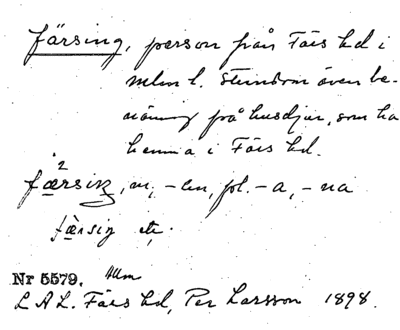 färsing, person från Färs hd i
mlm l. Stundom även be-
nämning på husdjur, som ha
hemma i Färs hd.
færsiŋ, m, -en, pl. -a, -na
færsig etc.
Nr 5579.
L A L. Färs hd, Per Larsson 1898.